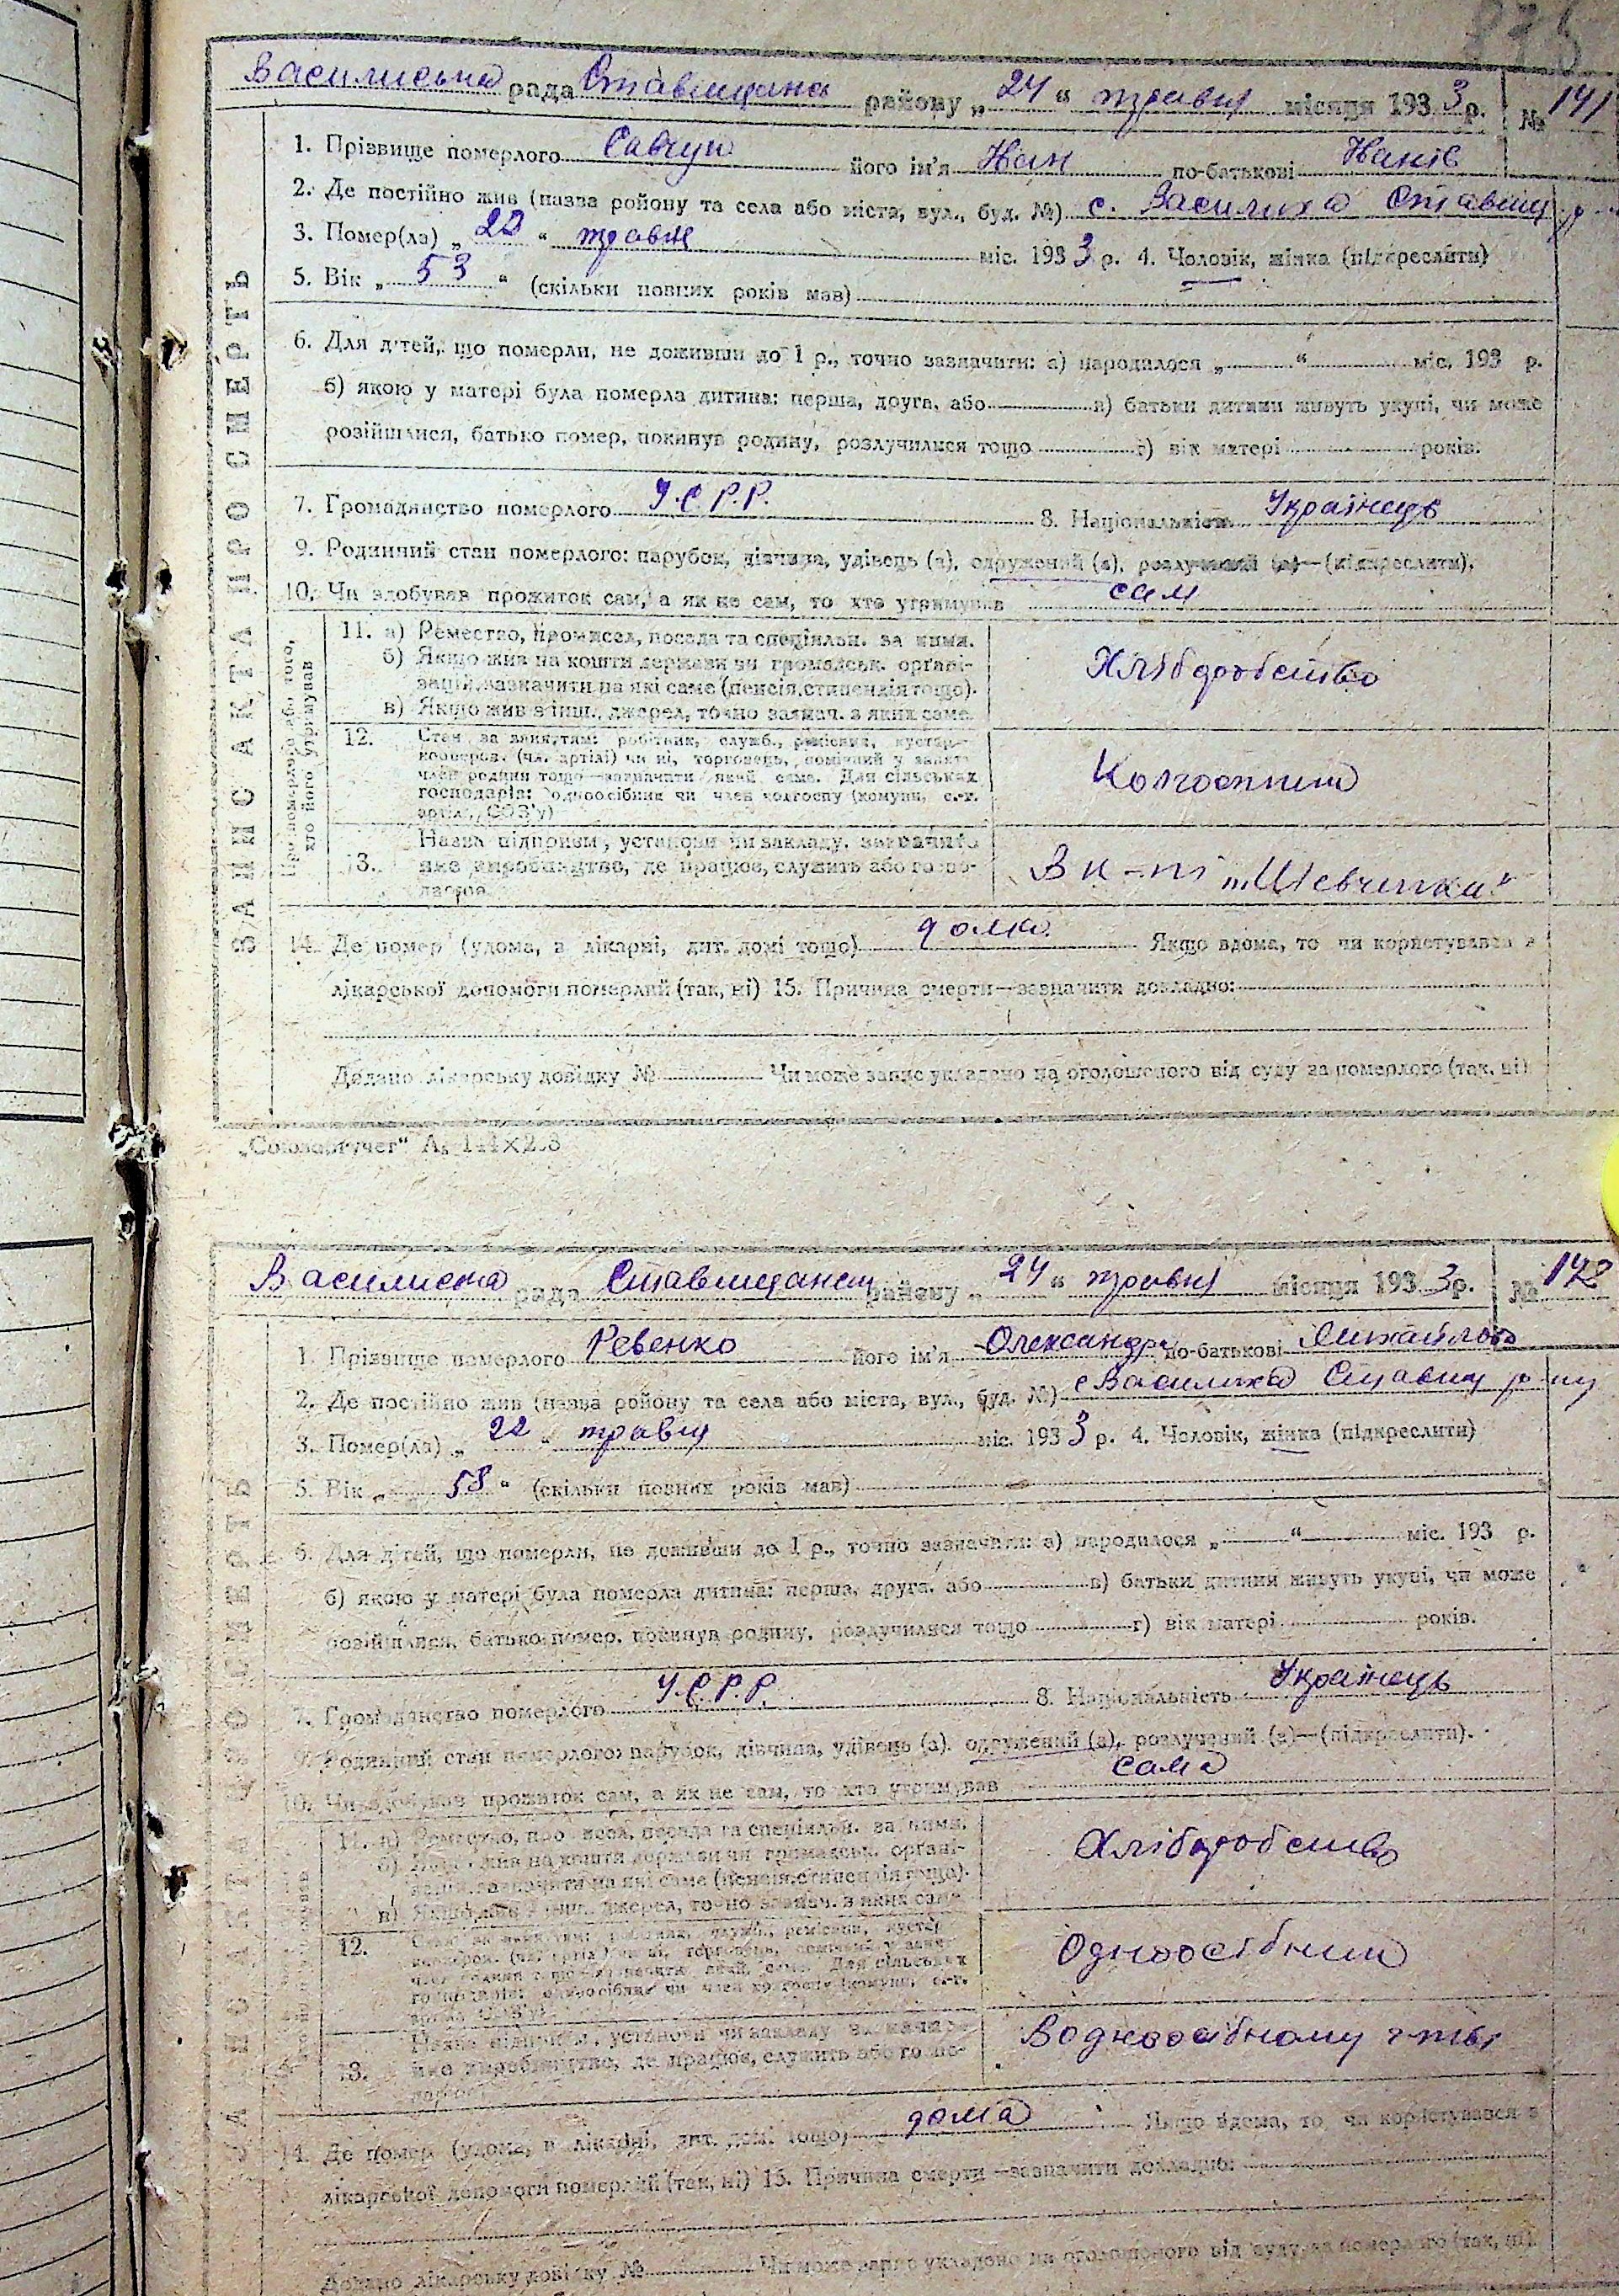 Василиська рада Ставищанс району „24“ травня місяця 1933 р. № 141
1. Прізвище померлого Савчук його ім'я Іван по-батькові Іванів
2. Де постійно жив (назва ройону та села або міста, вул., буд. №) с. Василиха Ставищ р-
3. Помер(ла) „22“ травня міс. 1933 р. 4. Чоловік, жінка (підкреслити)
5. Вік „53“ (скільки повних років мав)
6. Для дітей, що померли, не доживши до 1 р., точно зазначити: а) народилося „ “ міс. 193 р.
б) якою у матері була померла дитина: перша, друга, або в) батьки дитини живуть укупі, чи може
розійшлися, батько помер, покинув родину, розлучилися тощо г) вік матері років.
7. Громадянство померлого У.С.Р.Р. 8. Національність Українець
9. Родинний стан померлого: парубок, дівчина, удівець (а), одружений (а), розлучений (а)—(підкреслити).
10. Чи здобував прожиток сам, а як не сам, то хто утримував сам
ЗАПИС АКТА ПРО СМЕРТЬ
Про померлого або того,
хто його утримував
11. а) Ремество, промисел, посада та спеціяльн. за ними.
б) Якщо жив на кошти держави чи громадськ. органі-
зацій, зазначити на які саме (пенсія, стипендія тощо).
в) Якщо жив з інш. джерел, точно зазнач. з яких саме.
Хліборобство
12. Стан за заняттям: робітник, служб., ремісник, кустар-
кооперов. (чл. артілі) чи ні, торговець, помічний у занят.
член родини тощо—зазначити який саме. Для сільських
господарів: одноосібник чи член колгоспу (комуни, с.-г.
артілі, СОЗ'у)
Колгоспник
13. Назва підприєм., установи чи закладу, зазначити
яке виробництво, де працює, служить або госпо-
дарює
В к-пі „Шевченка“
14. Де помер (удома, в лікарні, дит. домі тощо) дома Якщо вдома, то чи користувався з
лікарської допомоги померлий (так, ні) 15. Причина смерти—зазначити докладно:
Додано лікарську довідку № Чи може запис укладено на оголошеного від суду за померлого (так, ні)
„Союзоргучет“ А₅ 144×2.8
Василиська рада Ставищанськ району „24“ травня місяця 1933 р. № 142
1. Прізвище померлого Ревенко його ім'я Олександра по-батькові Михайлова
2. Де постійно жив (назва ройону та села або міста, вул., буд. №) с Василиха Ставищ р-ну
3. Помер(ла) „22“ травня міс. 1933 р. 4. Чоловік, жінка (підкреслити)
5. Вік „58“ (скільки повних років мав)
6. Для дітей, що померли, не доживши до 1 р., точно зазначити: а) народилося „ “ міс. 193 р.
б) якою у матері була померла дитина: перша, друга, або в) батьки дитини живуть укупі, чи може
розійшлися, батько помер, покинув родину, розлучилися тощо г) вік матері років.
7. Громадянство померлого У.С.Р.Р. 8. Національність Українець
9. Родинний стан померлого: парубок, дівчина, удівець (а), одружений (а), розлучений (а)—(підкреслити).
10. Чи здобував прожиток сам, а як не сам, то хто утримував сама
11. а) Ремество, промисел, посада та спеціяльн. за ними.
б) Якщо жив на кошти держави чи громадськ. органі-
зацій, зазначити на які саме (пенсія, стипендія тощо).
в) Якщо жив з інш. джерел, точно зазнач. з яких саме
Хліборобство
12.
Одноосібник
13. Назва підприєм., установи чи закладу зазначити
яке виробництво, де працює, служить або госпо-
дарює
В одноосібному г-тві
14. Де помер (удома, в лікарні, дит. домі тощо) дома Якщо вдома, то чи користувався з
лікарської допомоги померлий (так, ні) 15. Причина смерти—зазначити докладно:
Додано лікарську довідку № Чи може запис укладено на оголошеного від суду за померлого (так, ні).